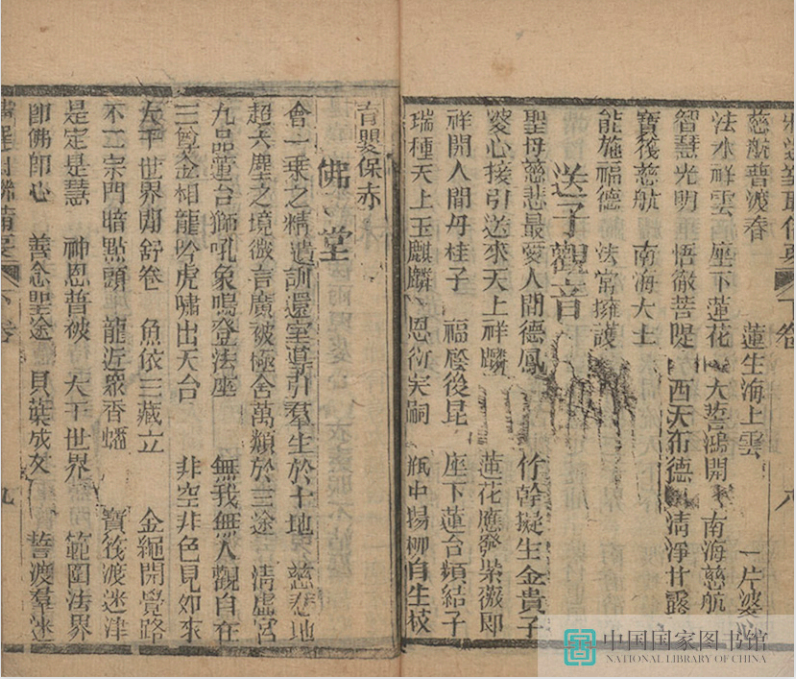 慈航普渡春　蓮生海上雲　一片婆
法水祥雲　座下蓮花　大誓鴻開　南海慈航
智慧光明　悟徹菩提　西天布德　清淨甘露
寶筏慈航　南海大士
能施福德　法官擁護
送子觀音
聖母慈悲最愛人間德鳳　竹幹擬生金貴子
愛心接引送來天上祥麟　蓮花應發紫薇郎
祥開人間丹桂子　福廕後昆　座下蓮台頻結子
瑞種天上玉麒麟　恩衍宋嗣　瓶中揚柳自生枝
八
育嬰保赤
佛堂
會一乘之精遺訓還室導引羣生於十地　慈悲地
超六塵之境微言廣被極舍萬類於三途　清虛宮
九品蓮台獅吼象鳴登法座　無我無人觀自在
三尊金相龍吟虎嘯出天台　非空非色見如來
大千世界開舒卷　魚依三藏立　金繩開覺路
不二宗門暗點頭　龍近眾香蟠　寶筏渡迷津
是定是慧　神恩普被　大千世界　範圍法界
即佛即心　善念聖途　貝葉成文　誓渡羣迷
對聯備要　下卷　九
中国国家图书馆
NATIONAL LIBRARY OF CHINA